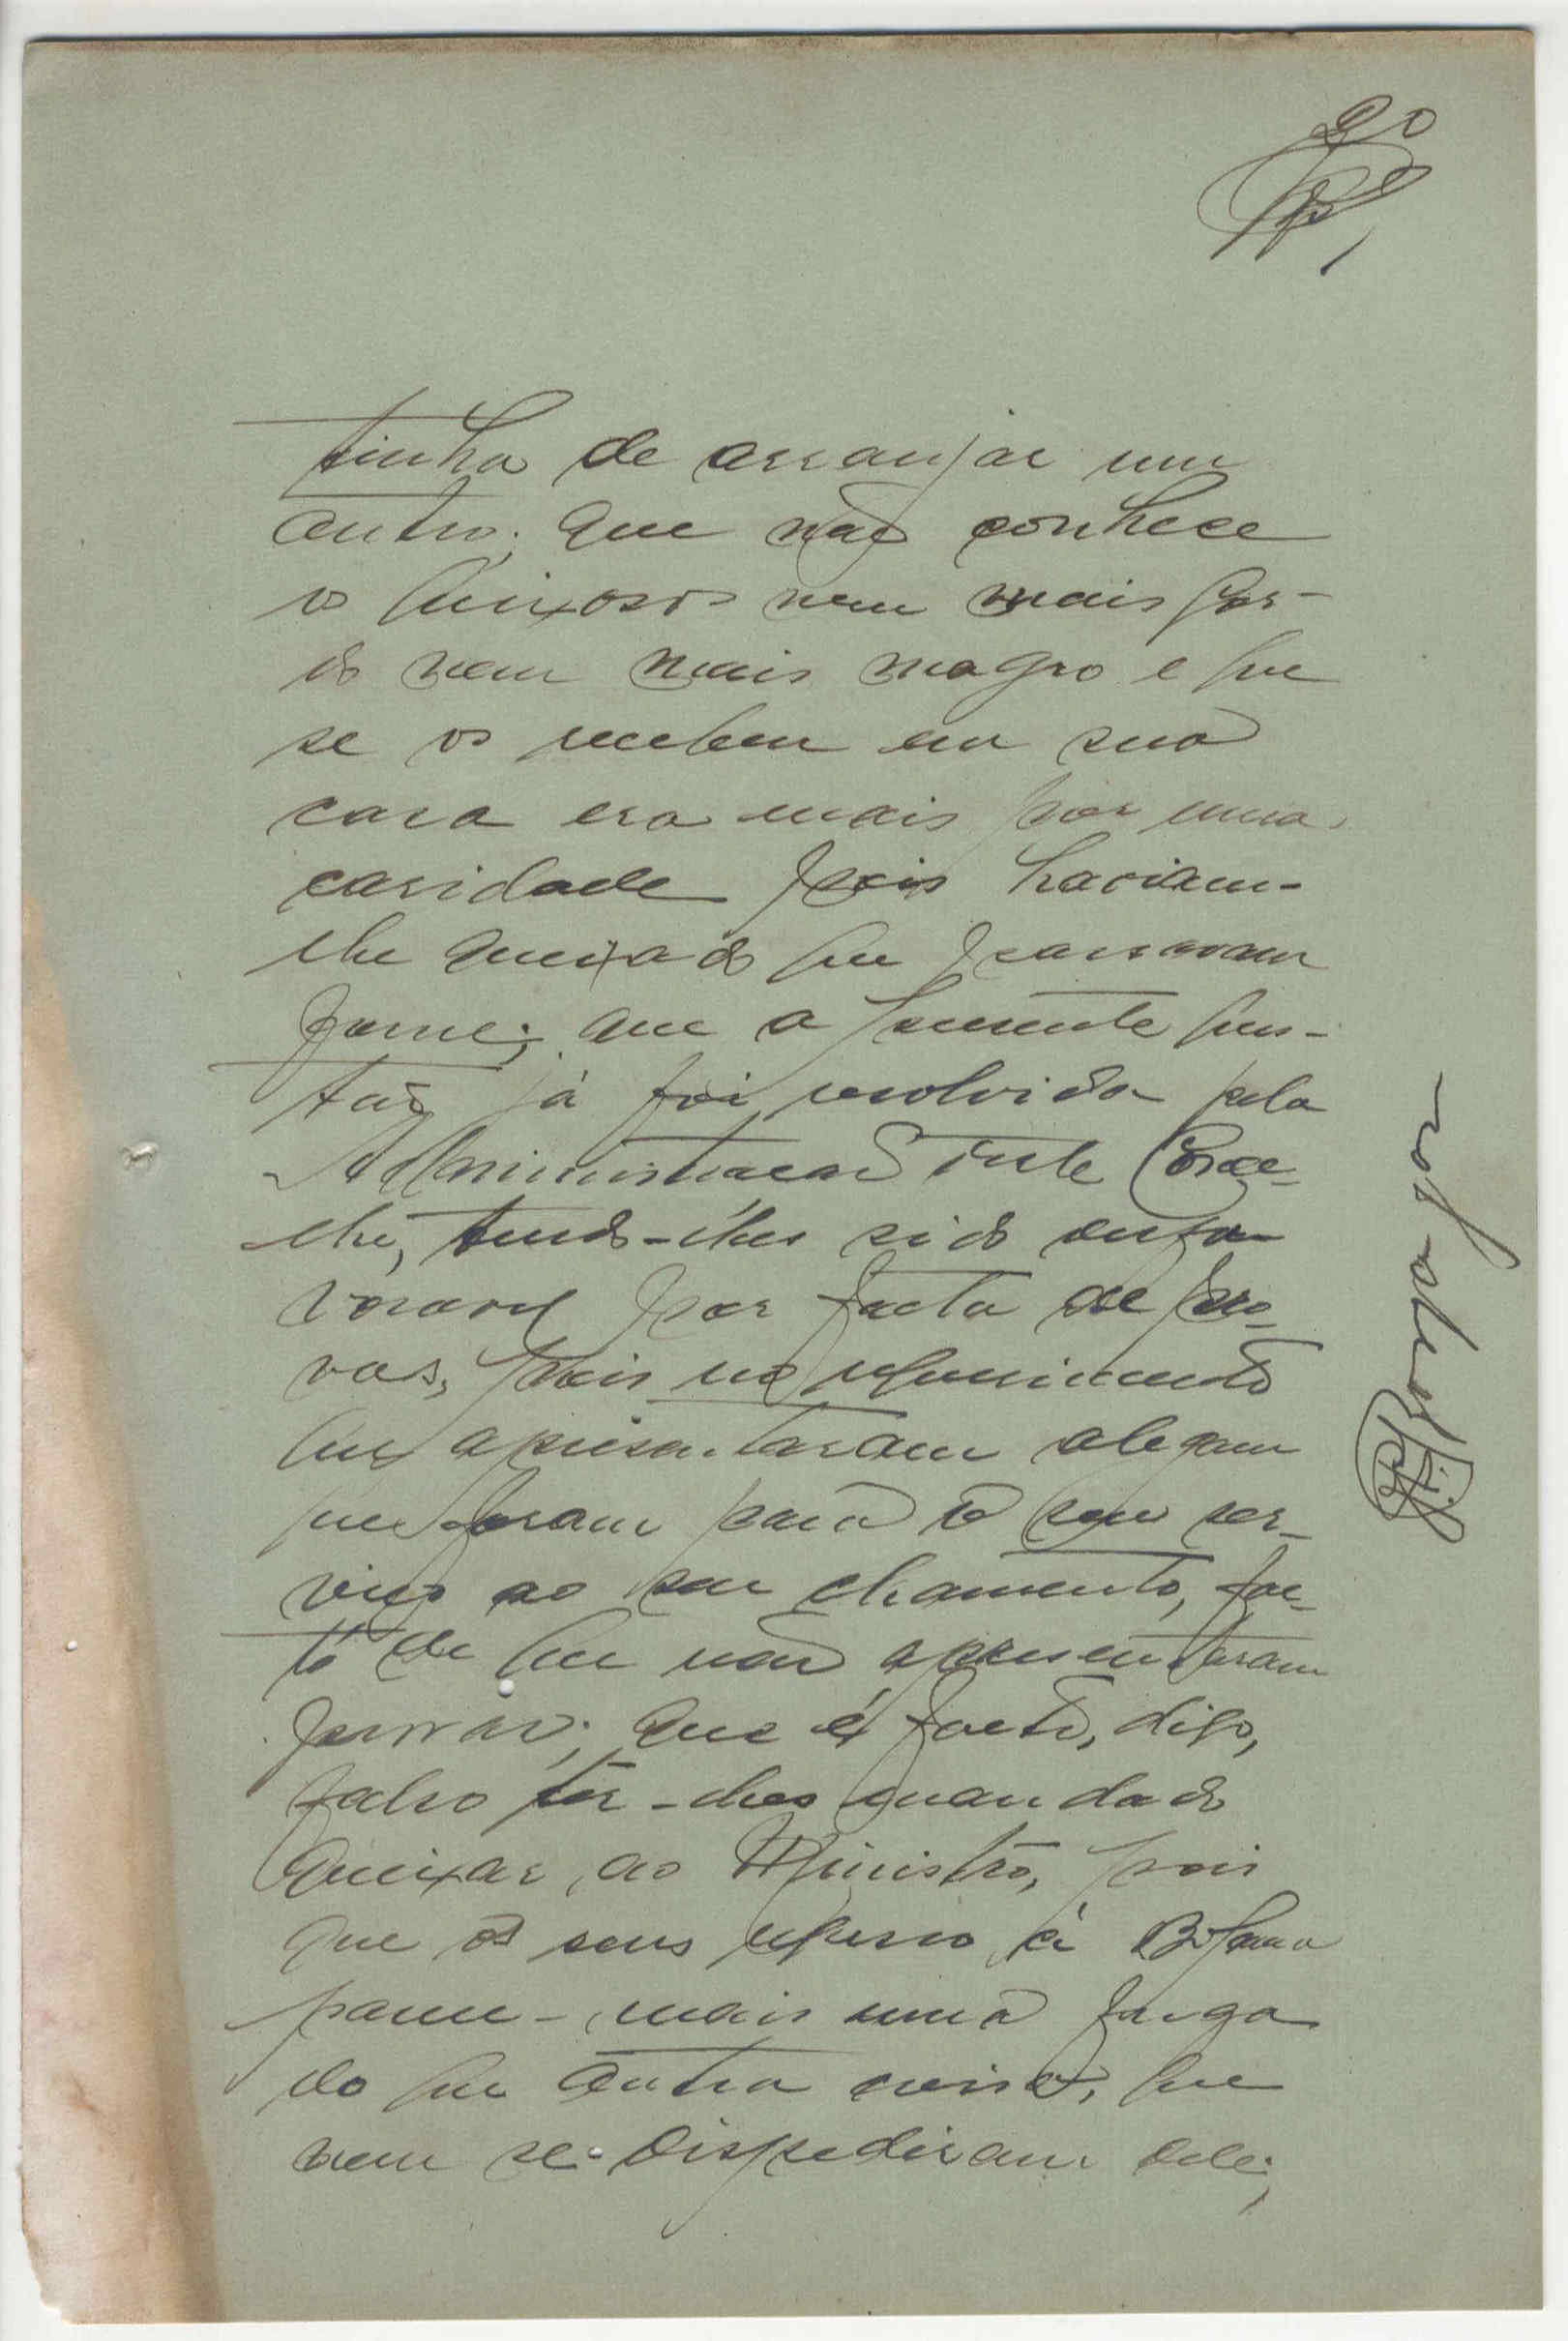 20
tinha de arranjar um
outro; que não conhece
os queixosos nem mais gor-
do nem mais magro e que
se os recebeu em sua
casa era mais por uma
caridade pois haviam-
lhe queixado que passavam
fome; que a presente ques-
tão já foi resolvida pela
Administração deste Conce-
lho, tendo-lhes sido desfa-
voravel por facta de pro-
vas, pois no requerimento
que apresentaram alegam
que foram para o seu ser-
viço ao seu chamento, fac-
to de que não apresentaram
provas; que é facto, digo,
falso ter-lhes mandado
queixar ao Ministro, pois
que os seus regresso à
parece mais uma fuga
do que outra coisa, que
nem se dispediram dele;